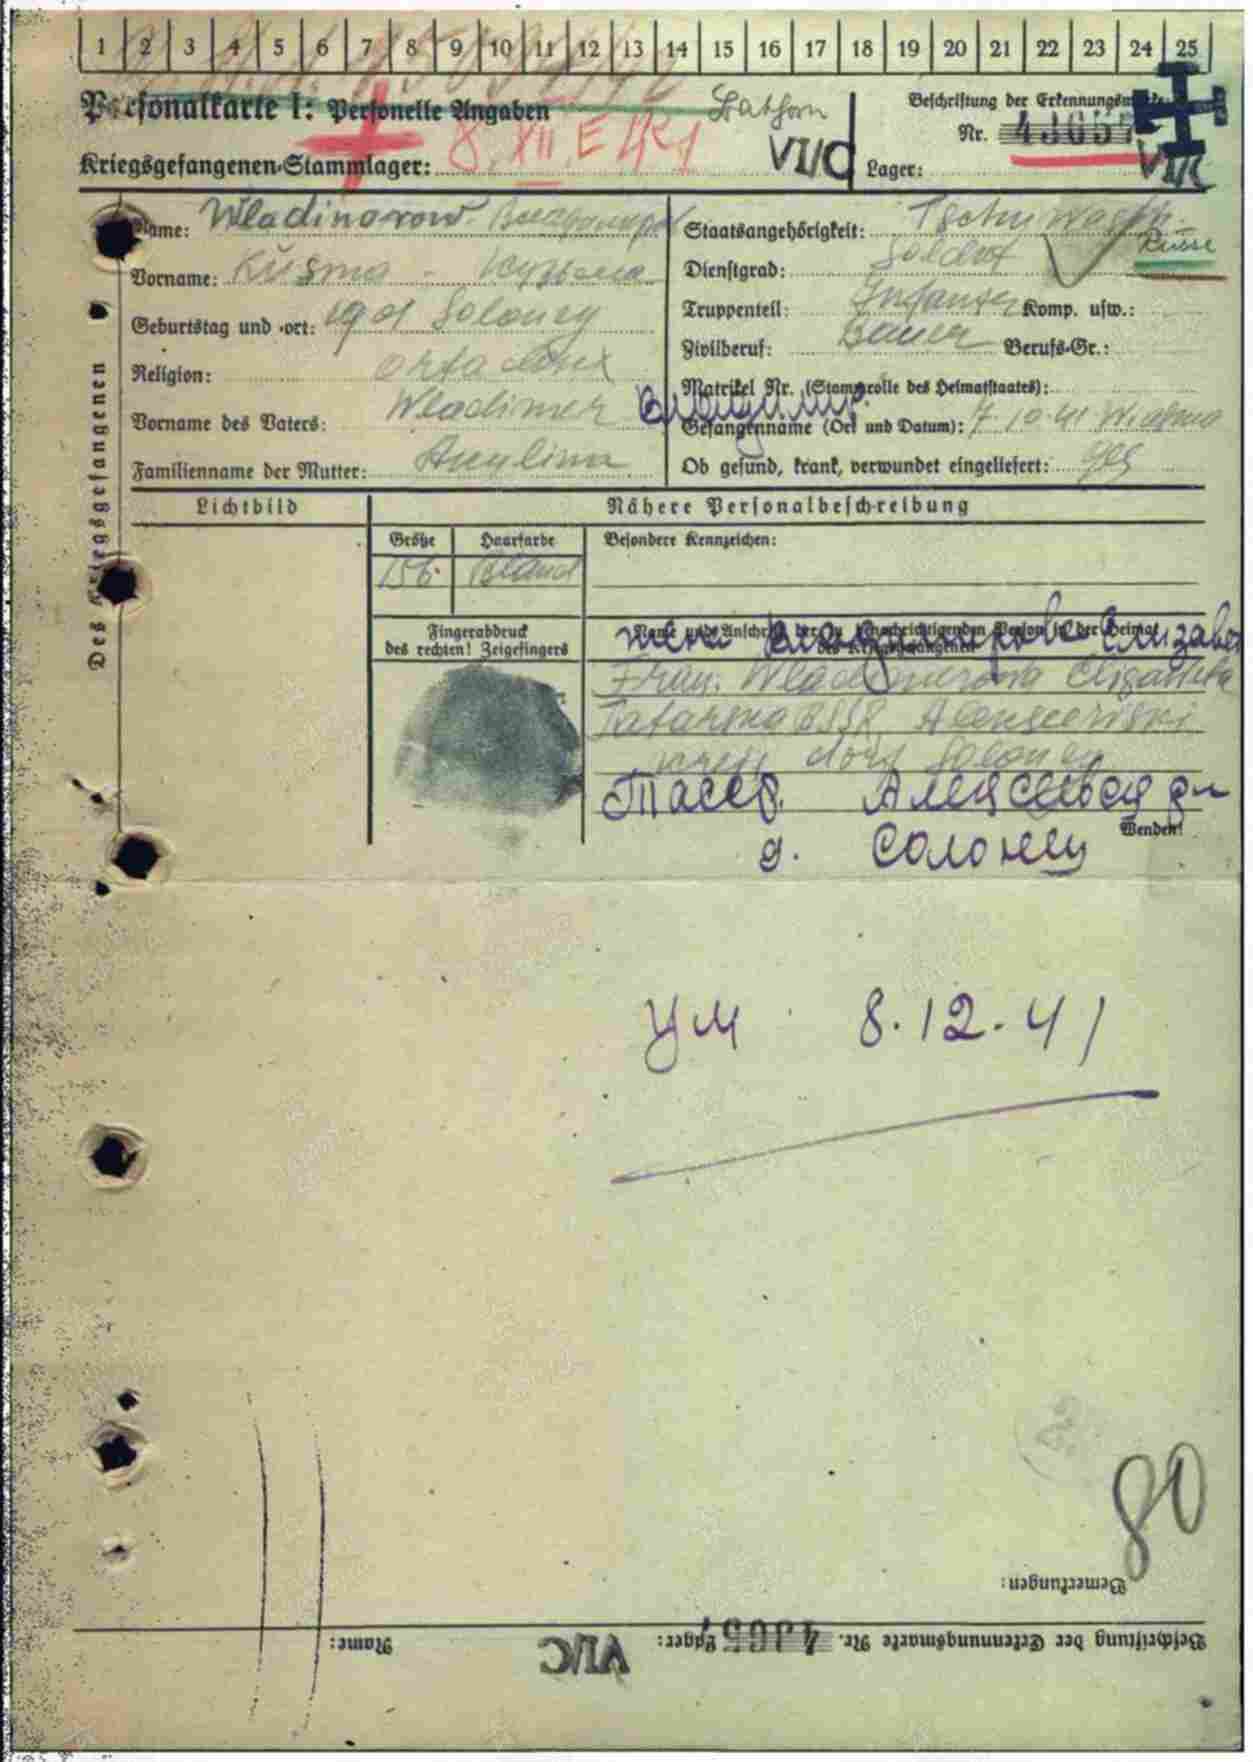 1 2 3 4 5 6 7 8 9 10 11 12 13 14 15 16 17 18 19 20 21 22 23 24 25
Personalkarte I: Personelle Angaben
Kriegsgefangenen-Stammlager: 8. XII. E K 1 VI/C
Bathorn
Beschriftung der Erkennungsmarke
Nr. 43657
Lager: VI/C
Des Kriegsgefangenen
Name: Wladimorow
Vorname: Kusma - Кузьма
Geburtstag und -ort: 1901 Soloney
Religion: ortadox
Vorname des Vaters: Wladimer Владимир.
Familienname der Mutter: Akylina
Staatsangehörigkeit: Tschuwasch. Russe
Dienstgrad: Soldat
Truppenteil: Infanter Komp. usw.:
Zivilberuf: Bauer Berufs-Gr.:
Matrikel Nr. (Stammrolle des Heimatstaates):
Gefangenname (Ort und Datum): 7.10.41 Wiasma
Ob gesund, krank, verwundet eingeliefert: ges
Lichtbild
Nähere Personalbeschreibung
Größe Haarfarbe Besondere Kennzeichen:
156. Bland
Fingerabdruck
des rechten! Zeigefingers
Name und Anschrift der zu benachrichtigenden Person in der Heimat
des Kriegsgefangenen
жена Владимирова Елизавет
Frau. Wladimirowa Elisaweta
Tatarska SSR
kreis dorf Soloney
д. Солонец
Wenden!
Ум 8.12.41
80
Bemerkungen:
Beschriftung der Erkennungsmarke Nr. 43657 Lager: VI/C Name: